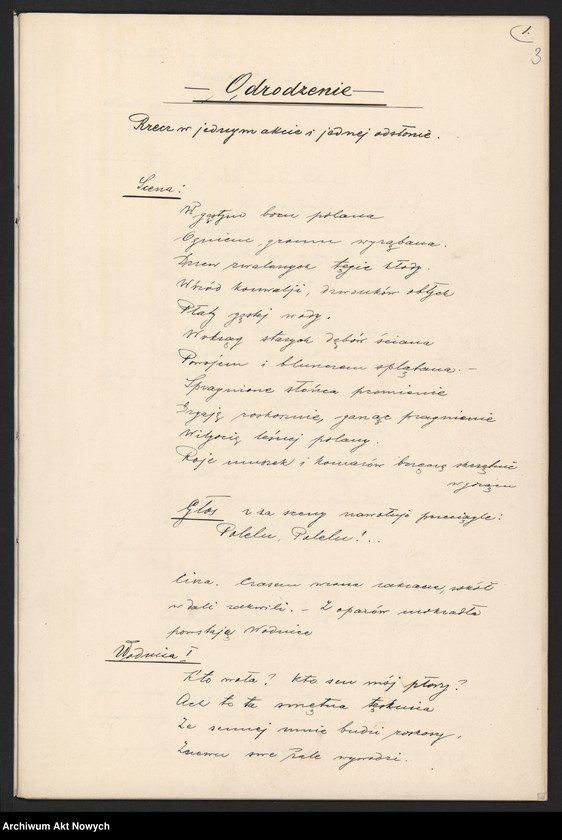 1.
3
— Odrodzenie —
Rzecz w jednym akcie i jednej odsłonie.
Scena:
W gęstym boru polana
Ogniem, gromu wyrąbana.
Drzew zwalonych tępie kłody.
Wśród konwalji, dzwonków obłych
Płaty gęstej wody.
Wokrąg starych dębów ściana
Powojem i bluszczem splątana. —
Spragnione słońca promienie
Igrają rozkosznie, gasząc pragnienie
Wilgocią leśnej polany.
Roje muszek i komarów brzęczą skrzętnie
w gorącu
Głos z za sceny nawołuje przeciągle:
Polelu, Polelu!..
Cisza. Czasem wrona zakracze, sokół
w dali zakwili. — Z oparów mokradła
powstają Wodnice
Wodnica I
Kto woła? Kto sen mój płoszy?
Ach to ta smętna tęsknica
Ze sennej mnie budzi rozkoszy,
Znowu swe żale wywodzi.
Archiwum Akt Nowych